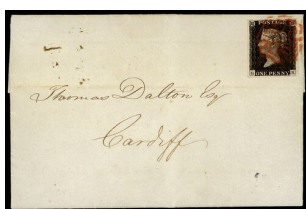 POSTAGE
ONE PENNY
Thomas Dalton Esq
Cardiff